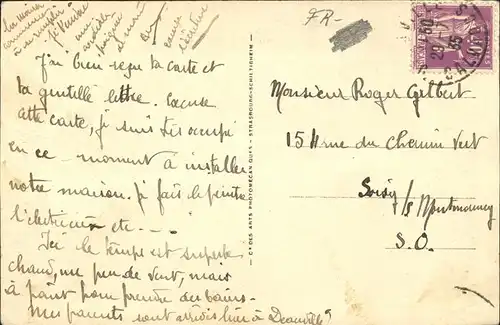 La maison
commence
à se remplir
J'ai bien reçu ta carte et
ta gentille lettre. Excuse
cette carte, je suis très occupé
en ce moment à installer
notre maison. Je fais le peintre
l'électricien etc - - -
Ici le temps est superbe
chaud, un peu de vent, mais
à point pour prendre des bains.
Mes parents sont arrivés hier à Deauville
Cie DES ARTS PHOTOMÉCANIQUES - STRASBOURG-SCHILTIGHEIM
FR-
Monsieur Roger Gilbert
15 rue du Chemin Vert
Soisy
s/s Montmorency
S.O.